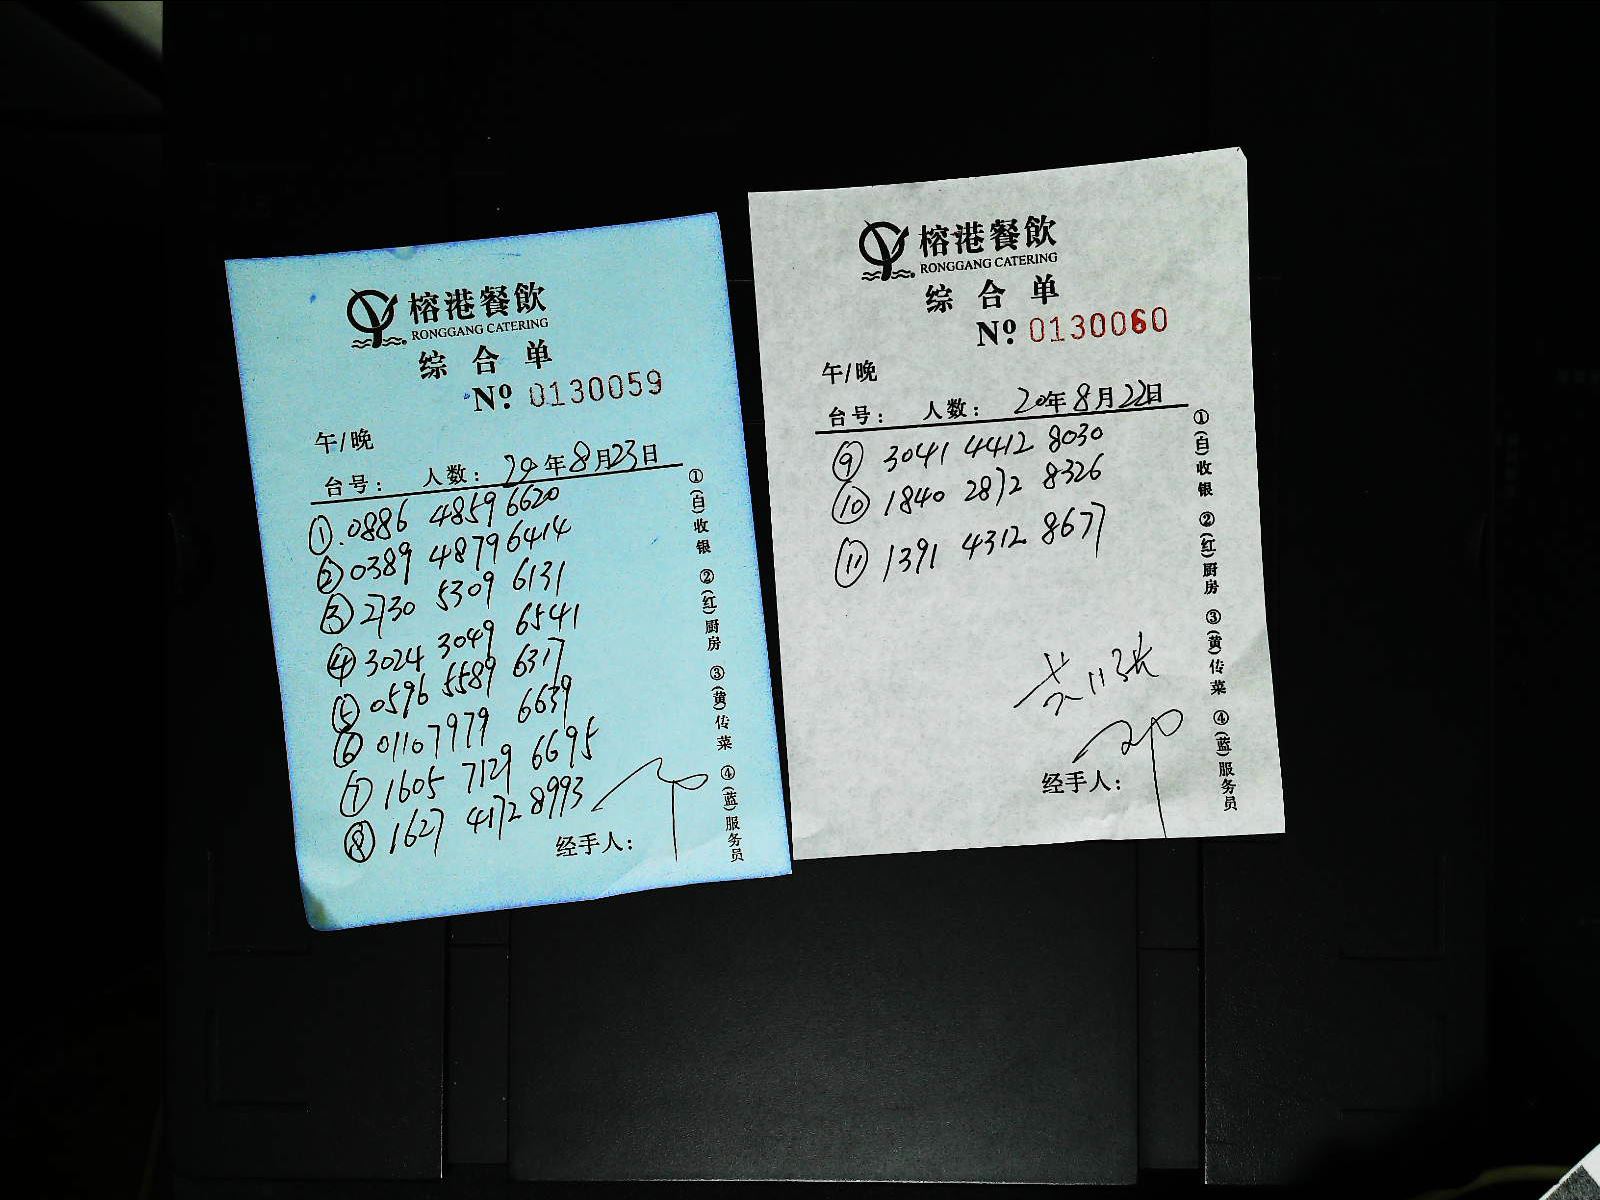 榕港餐飲
RONGGANG CATERING
综合单
Nº 0130059
午/晚
台号: 人数: 20年8月23日
① 0886 4859 6620
② 0389 4879 6414
③ 2730 5309 6131
④ 3024 3049 6541
⑤ 0596 5589 6317
⑥ 0110 7979 6639
⑦ 1605 7129 6695
⑧ 1627 4172 8993
经手人:
①(白)收银 ②(红)厨房 ③(黄)传菜 ④(蓝)服务员
榕港餐飲
RONGGANG CATERING
综合单
Nº 0130060
午/晚
台号: 人数: 20年8月22日
⑨ 3041 4412 8030
⑩ 1840 2872 8326
⑪ 1391 4312 8677
共11张
经手人:
①(白)收银 ②(红)厨房 ③(黄)传菜 ④(蓝)服务员